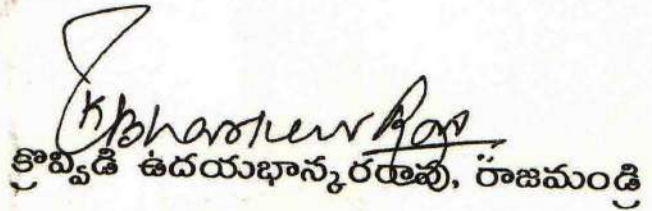 KBhaskar Rao
క్రొవ్విడి ఉదయభాస్కరరావు, రాజమండ్రి